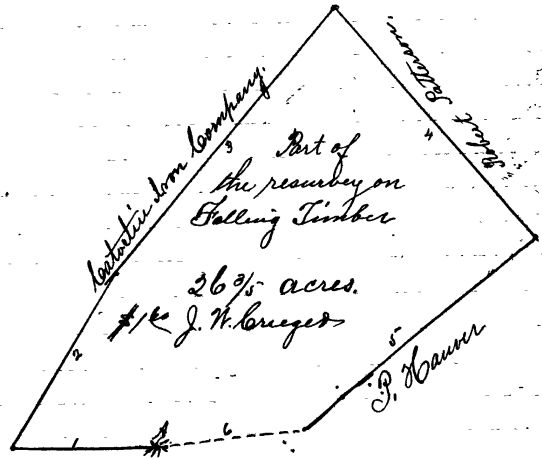 Catoctin Iron Company.
3
Robert Patterson.
4
Part of
the resurvey on
Felling Timber
26 3/5 acres.
J. W. Crugers
2
5
P. Hauver
1
6